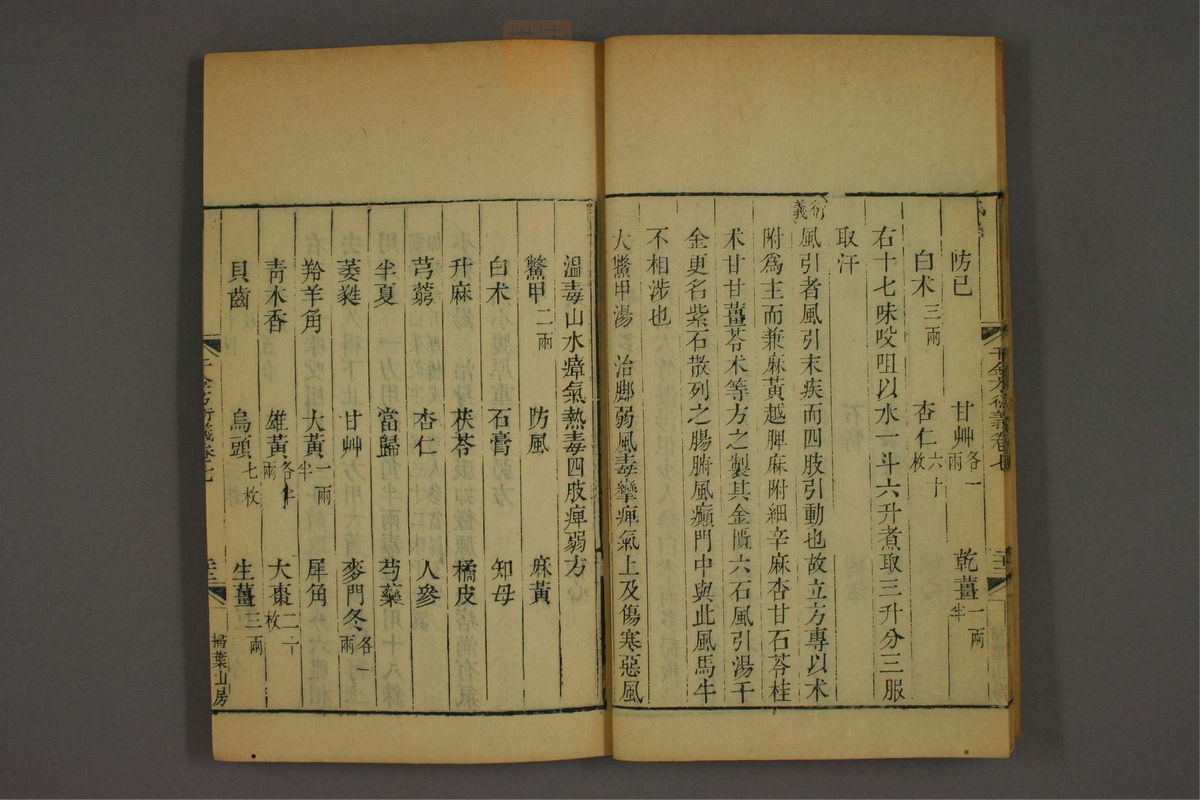 防己　甘艸各一兩　乾薑一兩半
白术三兩　杏仁六十枚
右十七味㕮咀以水一斗六升煮取三升分三服
取汗
衍義
風引者風引末疾而四肢引動也故立方專以术
附爲主而兼麻黃越脾麻附細辛麻杏甘石苓桂
术甘甘薑苓术等方之製其金匱六石風引湯千
金更名紫石散列之腸腑風癲門中與此風馬牛
不相涉也
大鱉甲湯　治腳弱風毒攣痺氣上及傷寒惡風
溫毒山水瘴氣熱毒四肢痺弱方
鱉甲二兩　防風　麻黃
白术　石膏　知母
升麻　茯苓　橘皮
芎藭　杏仁　人參
半夏　當歸　芍藥
萎蕤　甘艸　麥門冬各一兩
羚羊角　大黃一兩半　犀角
青木香　雄黃各半兩　大棗二十枚
貝齒　烏頭七枚　生薑三兩
千金方衍義卷七
掃葉山房